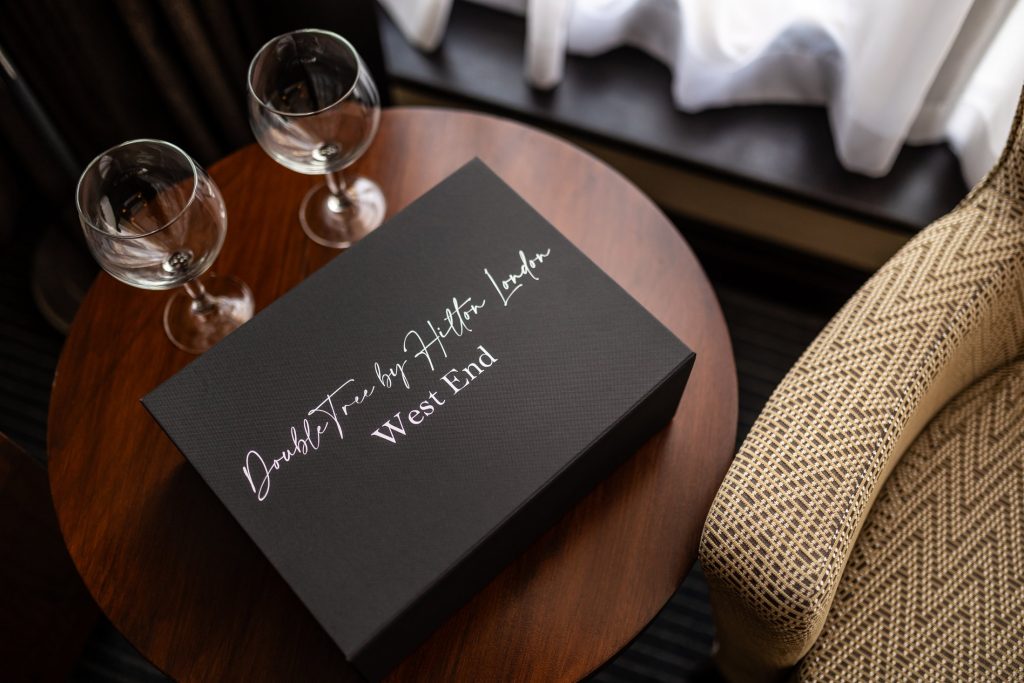 DoubleTree by Hilton London
West End